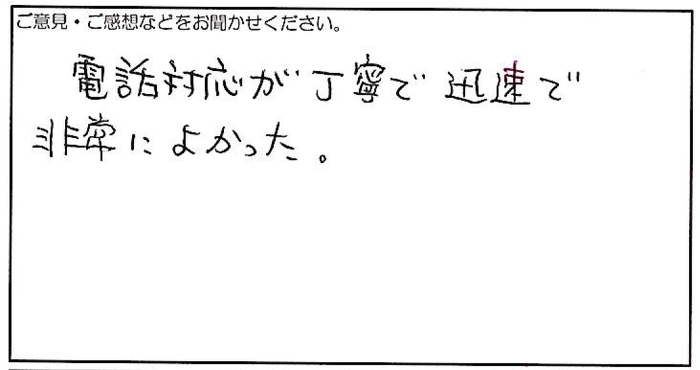 ご意見・ご感想などをお聞かせください。
電話対応が丁寧で迅速で
非常によかった。